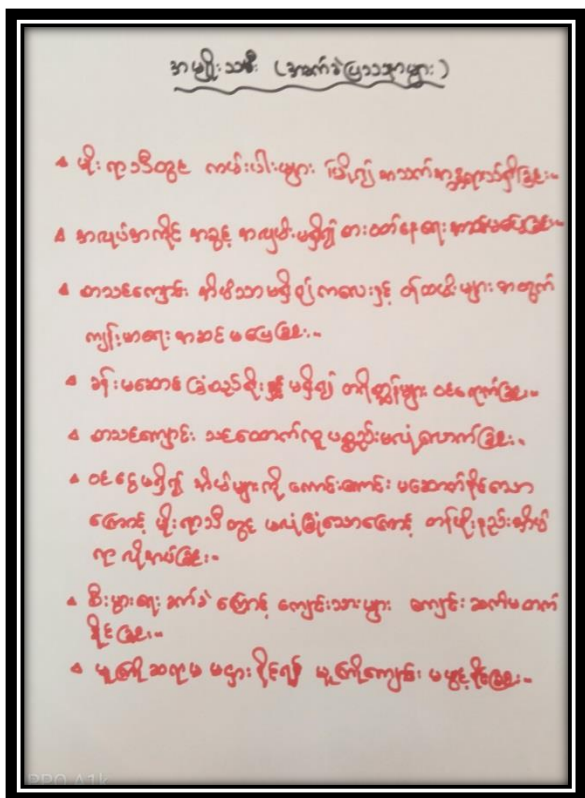 အမျိုးသမီး (အခက်ခဲပြဿနာများ)
မိုးရာသီတွင် ကမ်းပါးများ ပြို၍ အသက်အန္တရာယ်ရှိခြင်း။
အလုပ်အကိုင် အခွင့် အလမ်းမရှိ၍ စားဝတ်နေရေး
စာသင်ကျောင်း အိမ်သာမရှိ၍ ကလေးနှင့် ဝန်ထမ်းများ အတွက်
ကျန်းမာရေး အဆင်မပြေခြင်း။
ခန်းမဆောင် ခြံစည်းရိုး မရှိ၍ တိရိစ္ဆာန်များ ဝင်ရောက်ခြင်း။
စာသင်ကျောင်း သင်ထောက်ကူပစ္စည်းမလုံလောက်ခြင်း။
ဝင်ငွေမရှိ၍ အိမ်များကို ကောင်းကောင်း မဆောက်နိုင်သော
ကြောင့် မိုးရာသီတွင် မလုံခြုံသောကြောင့် တန်ဖိုးနည်းအိမ်
ရာ လိုအပ်ခြင်း။
စီးပွားရေးခက်ခဲ ကြောင့် ကျောင်းသားများ ကျောင်းဆက်မတက်
နိုင်ခြင်း။
မူကြိုဆရာမ မငှားနိုင်၍ မူကြိုကျောင်း မဖွင့်နိုင်ခြင်း။
PRO A1k